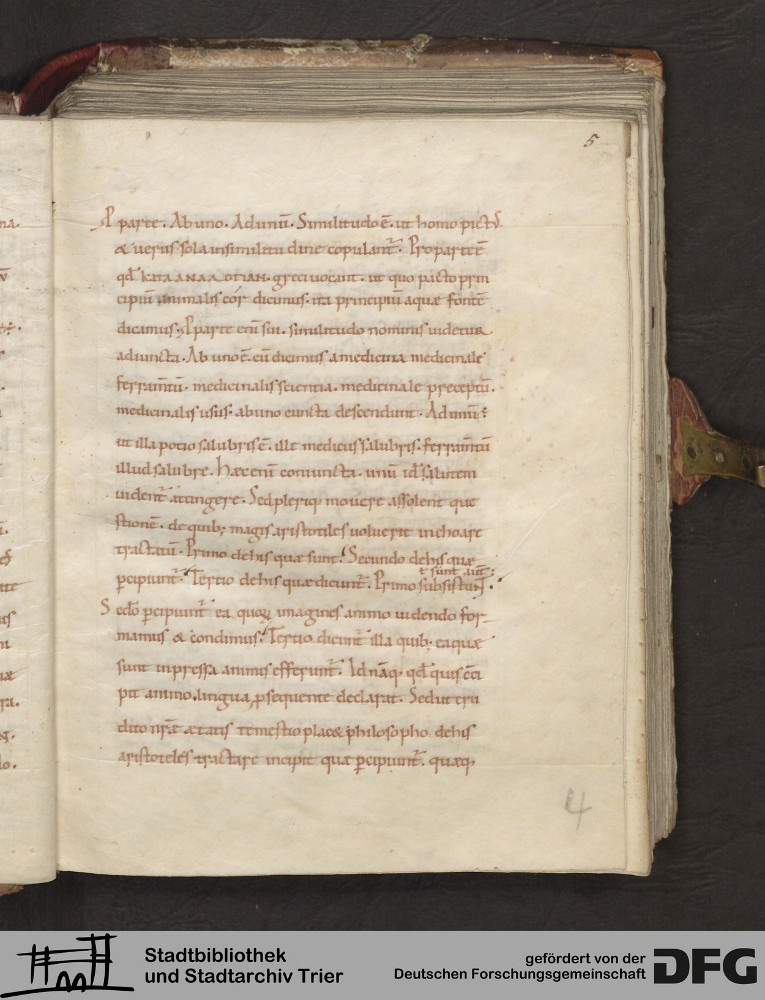 5
P parte. Ab uno. Ad unū. Similitudo ē. ut homo pict᷒
& uerus sola insimilitudine copulant᷑. Pro parte ē
qđ ΚΑΤΑ ΑΝΑΛΟΓΙΑΝ. greci uocant. ut quo pacto prin
cipiū animalis cór dicimus. ita principiū aquæ fontē
dicamus. Pparte etī sin. similitudo nominis uidetur
adiuncta. Ab uno ē. cū dicimus a medicina medicinale
ferram̄tū. medicinalis scientia. medicinale preceptū.
medicinalis usus. ab uno cuncta descendunt. Ad unū.
ut illa potio salubris ē. ille medicus salubris. ferram̄tū
illud salubre. Hæc enī coniuncta. unū id salutem
uident᷑ attingere. Sed pleriq; mouere assolent que
stionē. de quib; magis aristotiles uoluerit inchoare
tractatū. Primo de his quæ sunt. Secundo de his quæ
percipiunt᷑. Tertio de his quæ dicunt᷑. Primo subsistunt.
ł sunt
Sedo percipiunt᷑ ea quoꝝ imagines animo uidendo for-
mamus & condimus. Tertio dicunt᷑ illa quib; ea quæ
sunt inpressa animis efferunt᷑. Id nāq; qđ quis cōci
pit animo, lingua psequente declarat. Sed ut eru
dito nr̄æ ætatis temestio plac& philosopho. de his
aristoteles tractare incipit quæ percipiunt᷑. quæq;
4
Stadtbibliothek
und Stadtarchiv Trier
gefördert von der
Deutschen Forschungsgemeinschaft
DFG